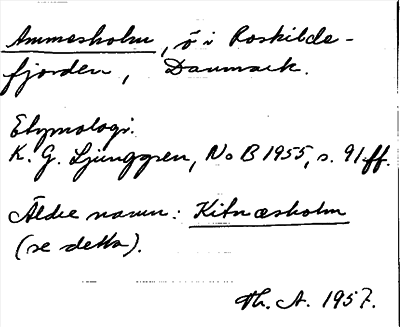 Ammesholm, ö i Roskilde-
fjorden, Danmark.
Etymologi:
K. G. Ljunggren, No B 1955, s. 91 ff.
Äldre namn: Kitnæsholm
(se detta).
Th. A. 1957.